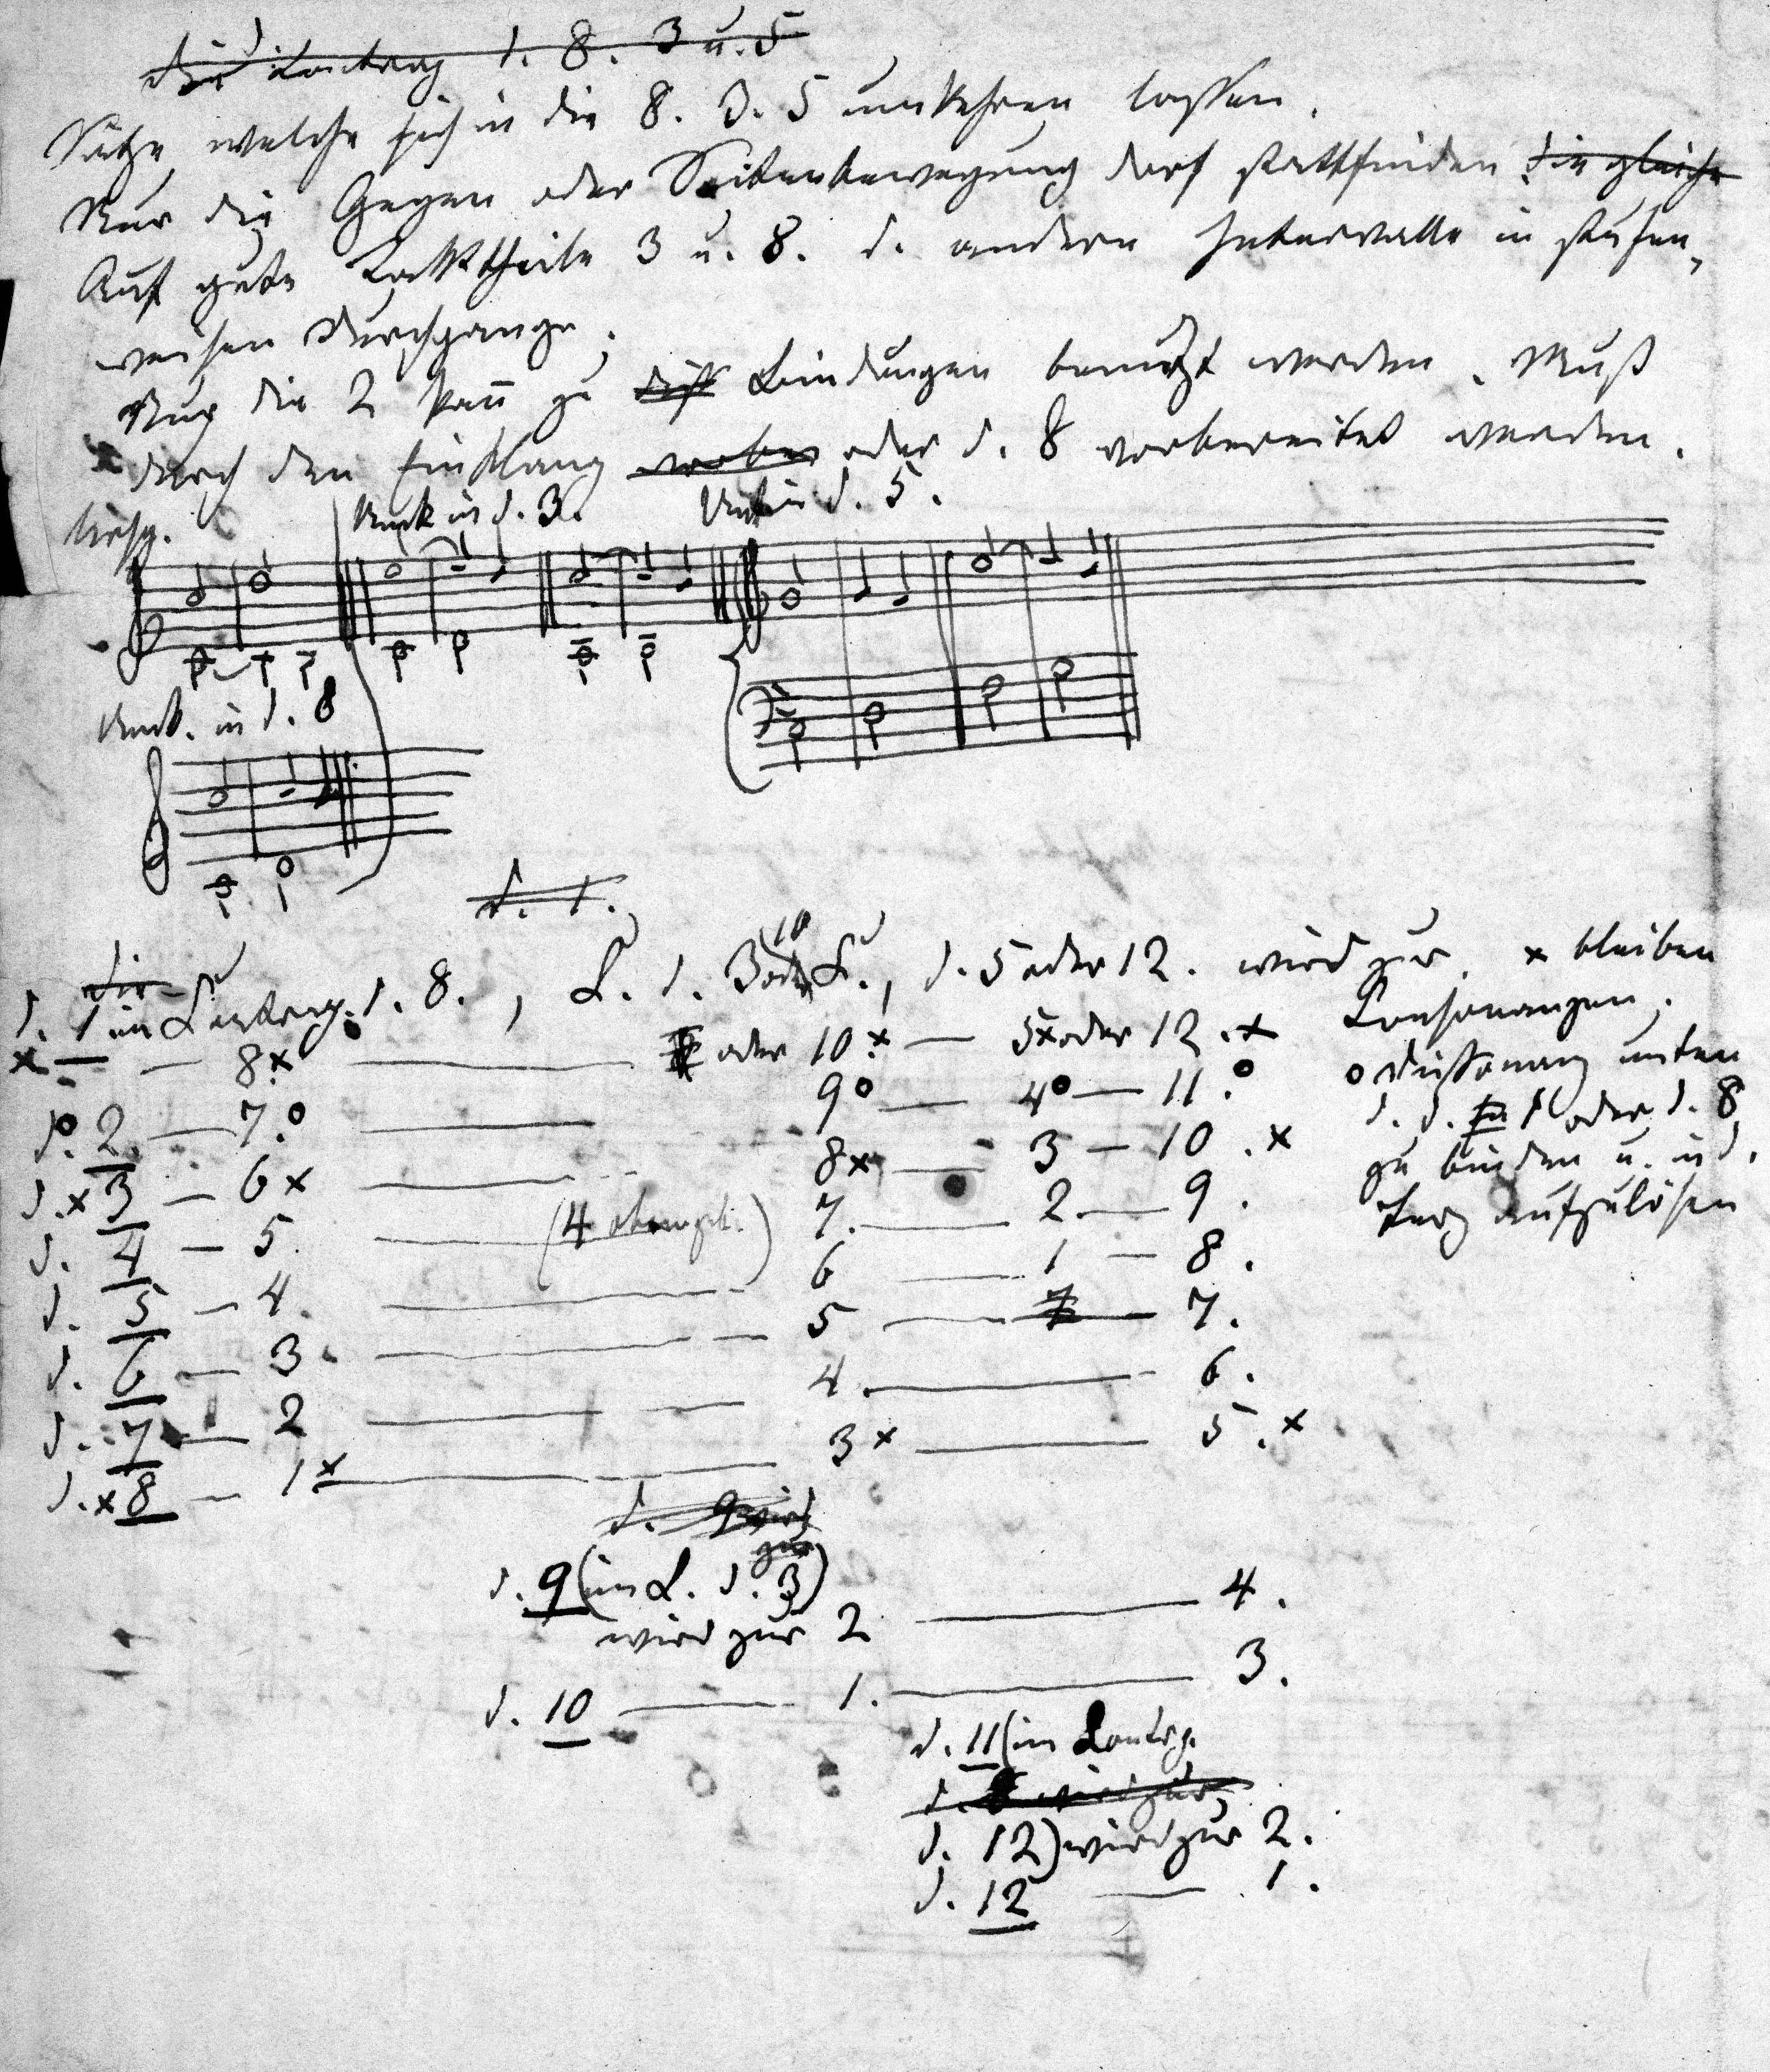 Für Contrap. d. 8. 3 u. 5
Sätze welche sich in die 8. 3. 5 umkehren lassen.
Nur die Gegen oder Seitenbewegung darf stattfinden die gleiche
Auf gute Takttheile 3 u. 8. d. andern Intervalle in stufen-
weisen Durchgange.
Nur die 2 kann zu diss Bindungen benutzt werden. Muß
durch den Einklang vorber oder d. 8 vorbereitet werden.
Umk in d. 3.
Umk in d. 5.
Umk. in d. 8
d. 1.
die
10
d. 1 im Contrap. d. 8., C. d. 3 oder C., d. 5 oder 12. wird zur. x bleiben
Consonanzen.
x — — 8x — oder 10.x — 5x oder 12.x
o Dissonanz unten
d.o 2 — 7.o — 9o — 4o — 11.o
d. d. 1 oder d. 8
d.x 3 — 6x — 8x — 3 — 10.x
zu binden u. in d.
d. 4 — 5. — (4 ) 7. — 2. — 9.
Terz aufzulösen
d. 5 — 4. — 6 — 1 — 8.
d. 6 — 3. — 5 — 7.
d. 7 — 2 — 4. — 6.
d.x 8 — 1x — 3x — 5.x
d. 9 wird
zur
d. 9 (im C. d. 3)
wird zur 2 — 4.
d. 10 — 1. — 3.
d. 11 (im Contrp.
d. 8 wird zur
d. 12) wird zur 2.
d. 12 — 1.